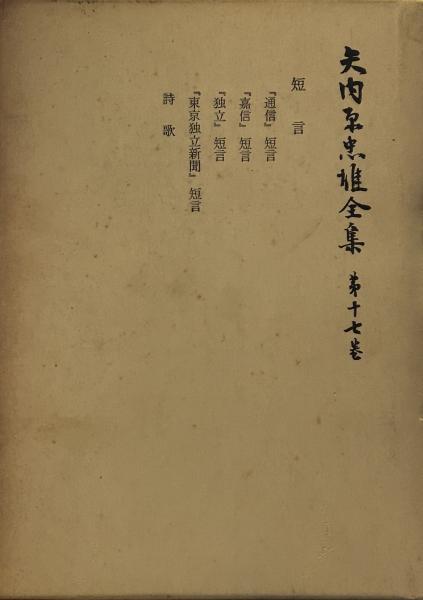 矢内原忠雄全集 第十七巻
短言
『通信』短言
『嘉信』短言
『独立』短言
『東京独立新聞』短言
詩歌